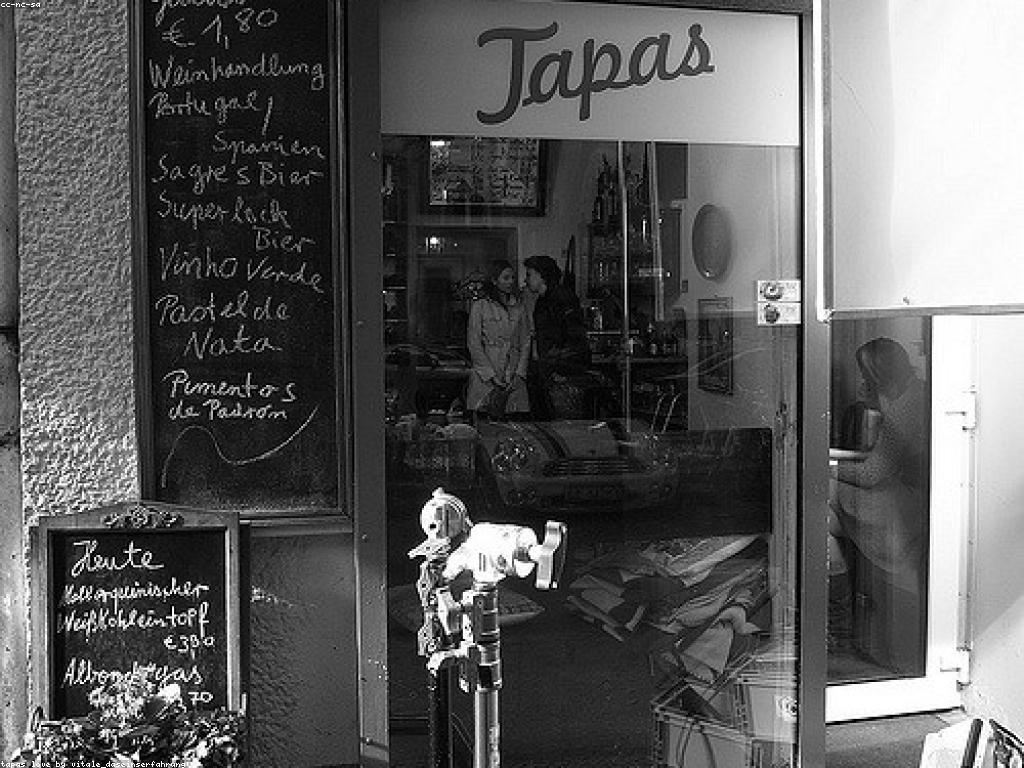 cc-nc-sa
€ 1,80
Weinhandlung
Portugal/
Spanien
Sagres Bier
Superbock
Bier
Vinho Verde
Pastel de
Nata
Pimentos
de Padron
Tapas
Heute
Mallorquinischer
Weißkohleintopf
€ 3,80
Albondigas
70
tapas love by vitale_daseinserfahrung